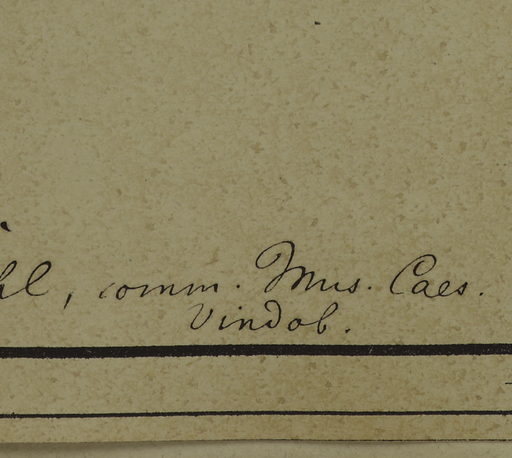 hl, comm. Mus. Caes.
Vindob.